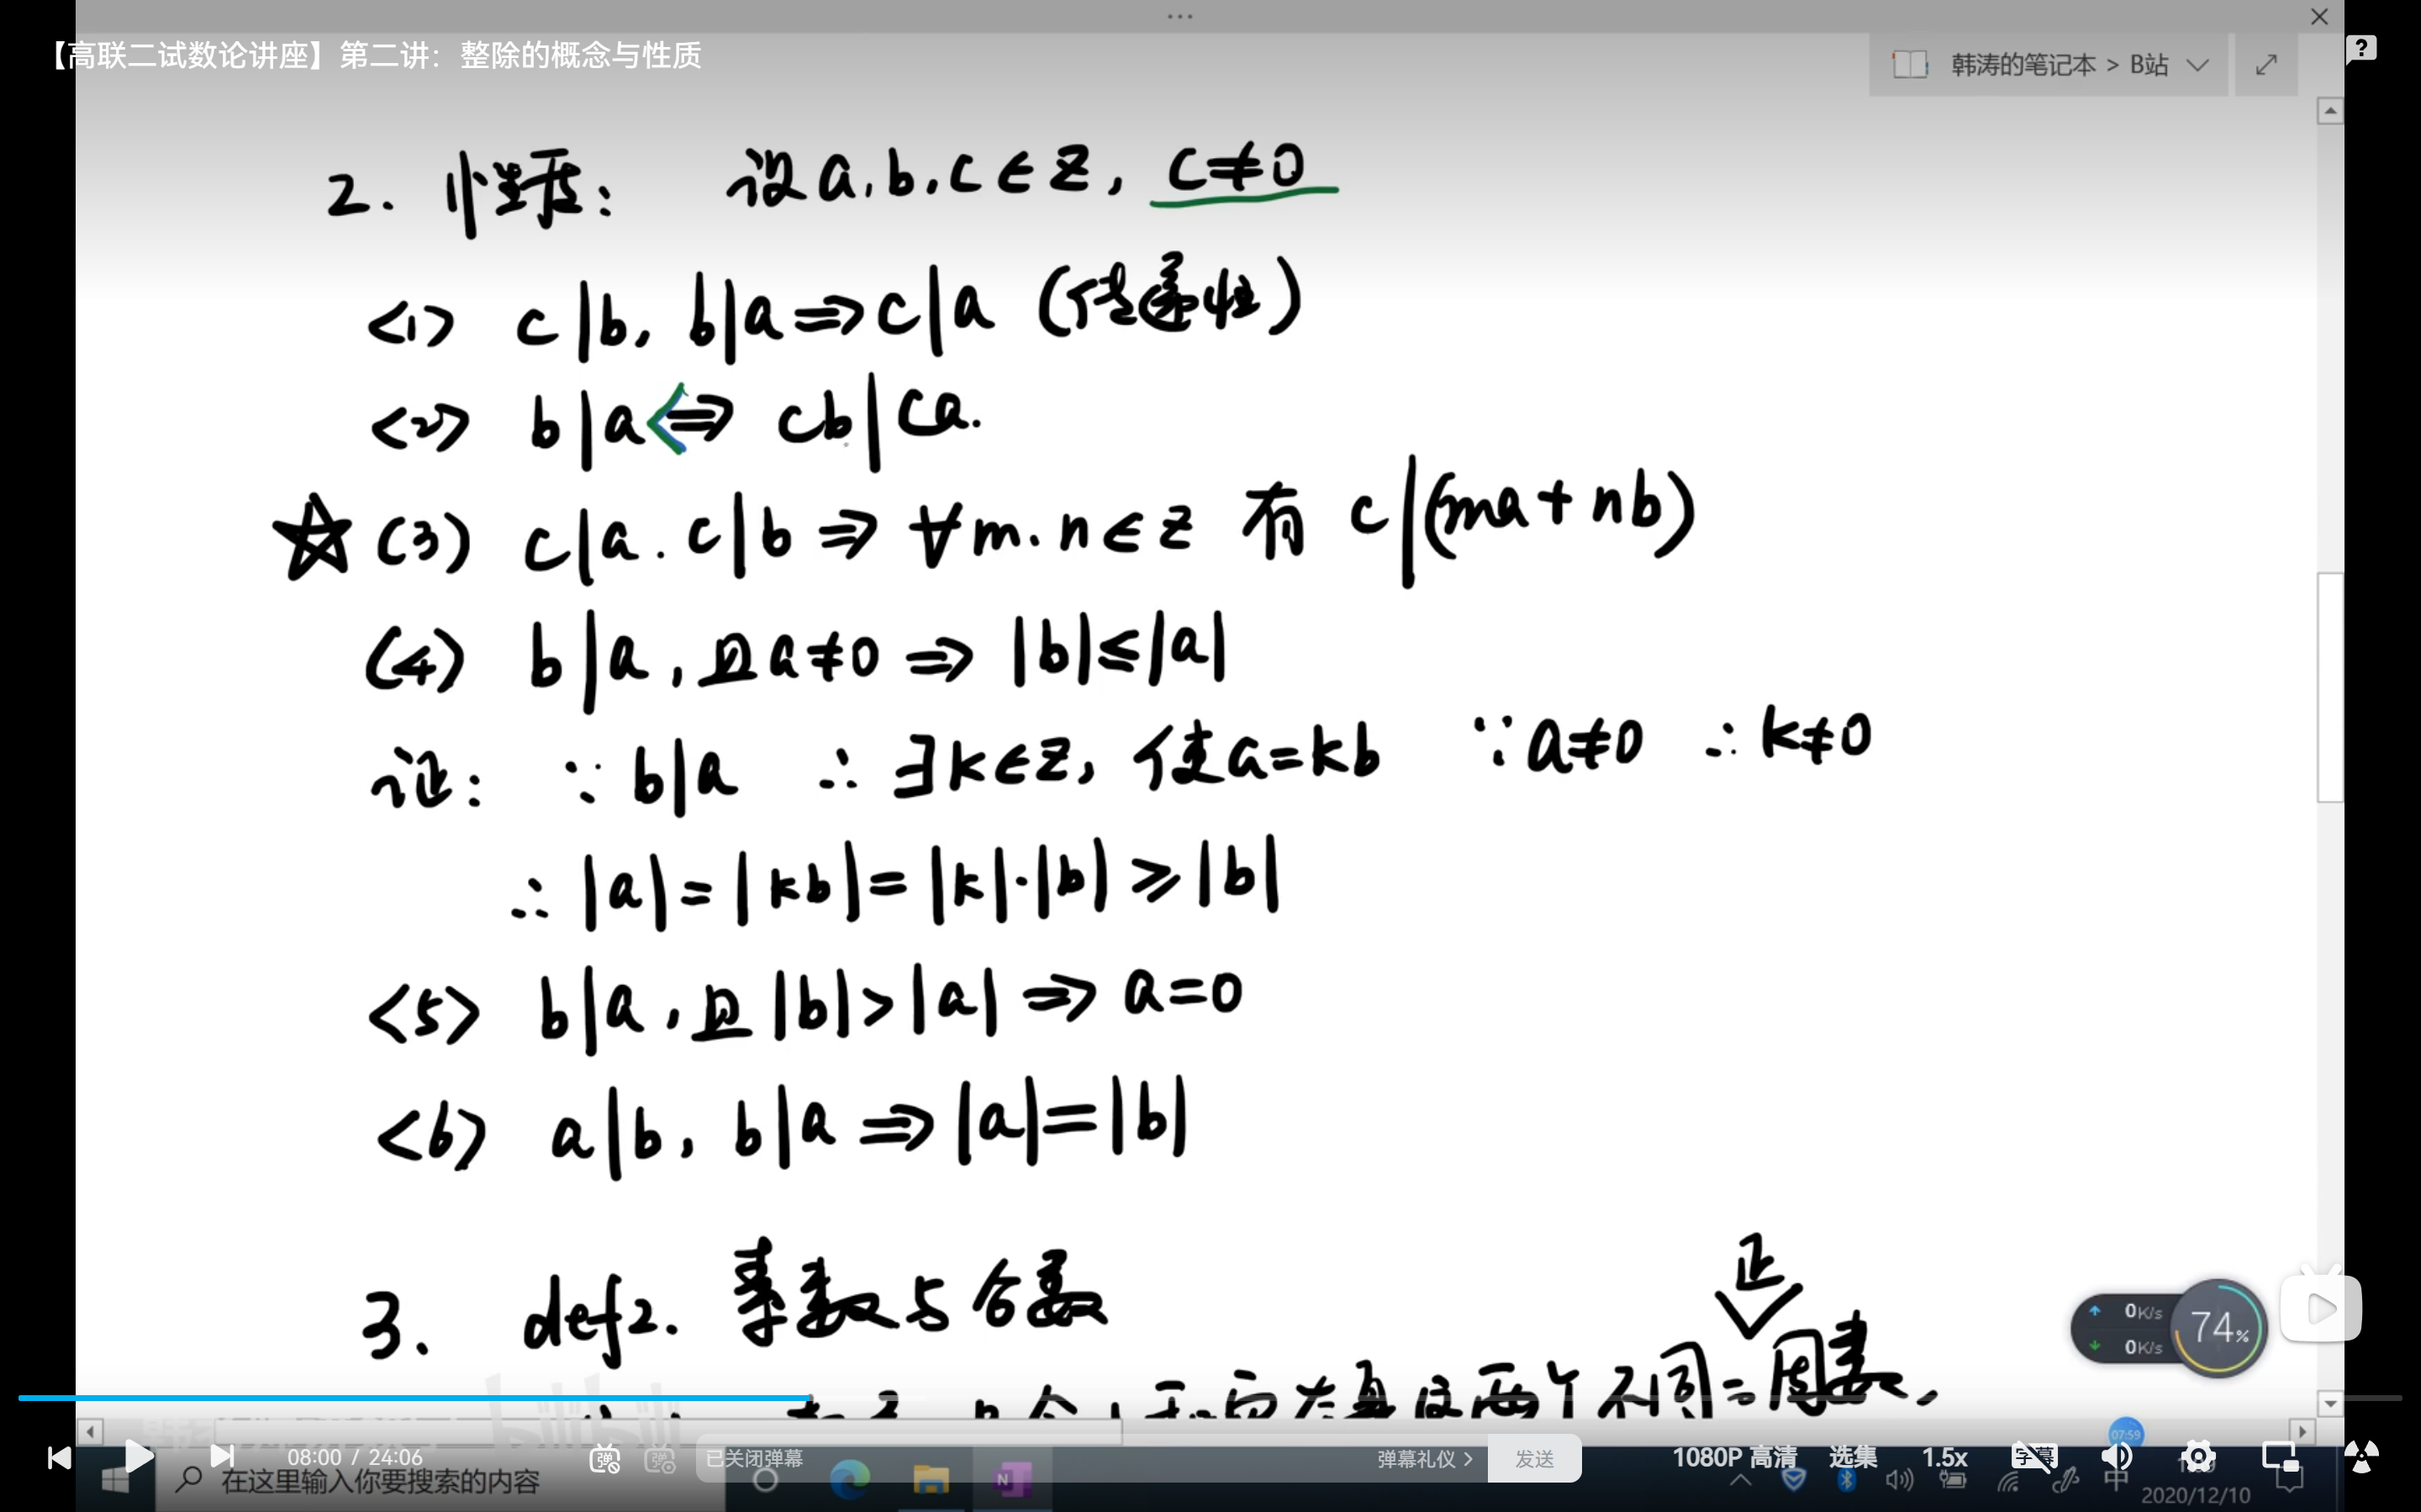 【高联二试数论讲座】第二讲：整除的概念与性质
韩涛的笔记本 > B站
2. 性质： 设a,b,c∈Z, c≠0
<1> c|b, b|a⇒c|a (传递性)
<2> b|a⇔ cb|ca.
☆(3) c|a. c|b ⇒ ∀m.n∈Z 有 c|(ma+nb)
(4) b|a,且a≠0 ⇒ |b|≤|a|
证: ∵b|a ∴∃k∈Z, 使a=kb ∵a≠0 ∴k≠0
∴|a|=|kb|=|k|·|b|≥|b|
<5> b|a,且|b|>|a| ⇒ a=0
<6> a|b, b|a ⇒|a|=|b|
正
3. def2. 素数与合数
两个不同正因数,
0K/s
0K/s
74%
07:59
08:00 / 24:06
已关闭弹幕
弹幕礼仪 >
发送
1080P 高清
选集
1.5x
字幕
在这里输入你要搜索的内容
中
2020/12/10